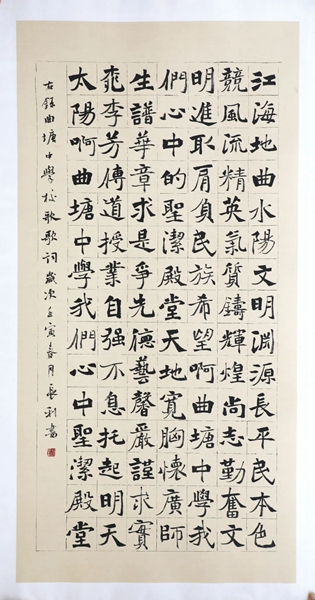 江海地曲水陽文明淵源長平民本色
競風流精英氣質鑄輝煌尚志勤奮文
明進取肩負民族希望啊曲塘中學我
們心中的聖潔殿堂天地寬胸懷廣師
生譜華章求是爭先德藝馨嚴謹求實
桃李芳傳道授業自强不息托起明天
太陽啊曲塘中學我們心中聖潔殿堂
右録曲塘中學校歌歌詞歲次壬寅春月長利書